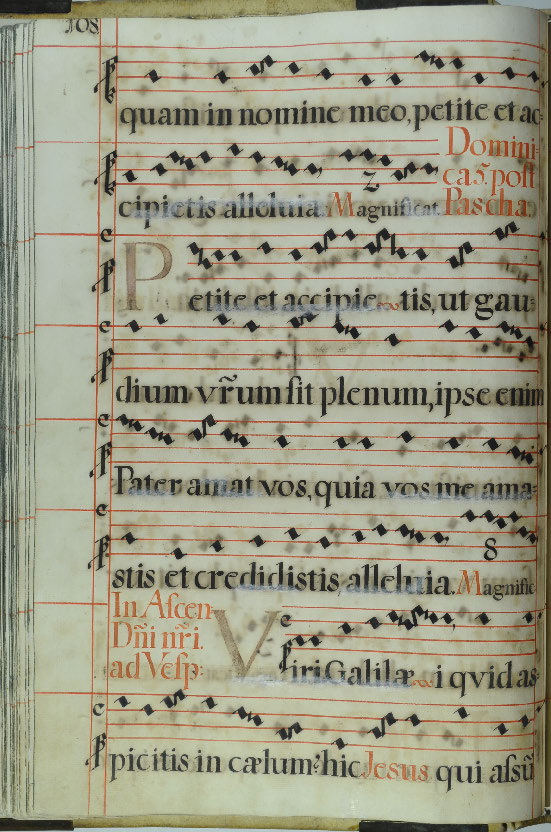 108
quam in nomine meo, petite et ac-
cipietis alleluia. Magnificat. Domini-
ca 5. post
Pascha.
Petite et accipie~tis, ut gau-
dium vr̃um sit plenum, ipse enim
Pater amat vos, quia vos me ama-
stis et credidistis, alleluia. Magnific
8
In Ascen
Dñi nr̃i.
ad Vesp:
Viri Galilæ~i quid as-
picitis in cælum? hic Jesus qui assũ